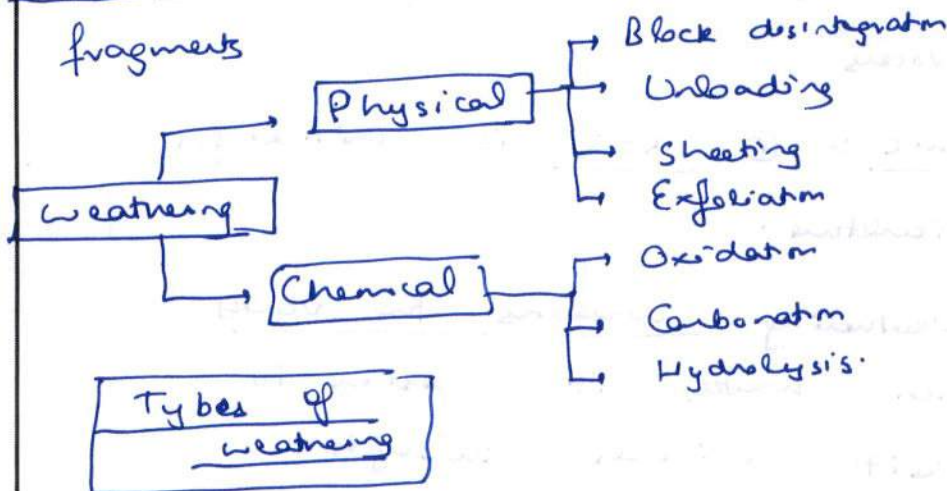 fragments
Physical
Block disintegration
Unloading
Sheeting
Exfoliation
weathering
Chemical
Oxidation
Carbonation
Hydrolysis.
Types of
weathering